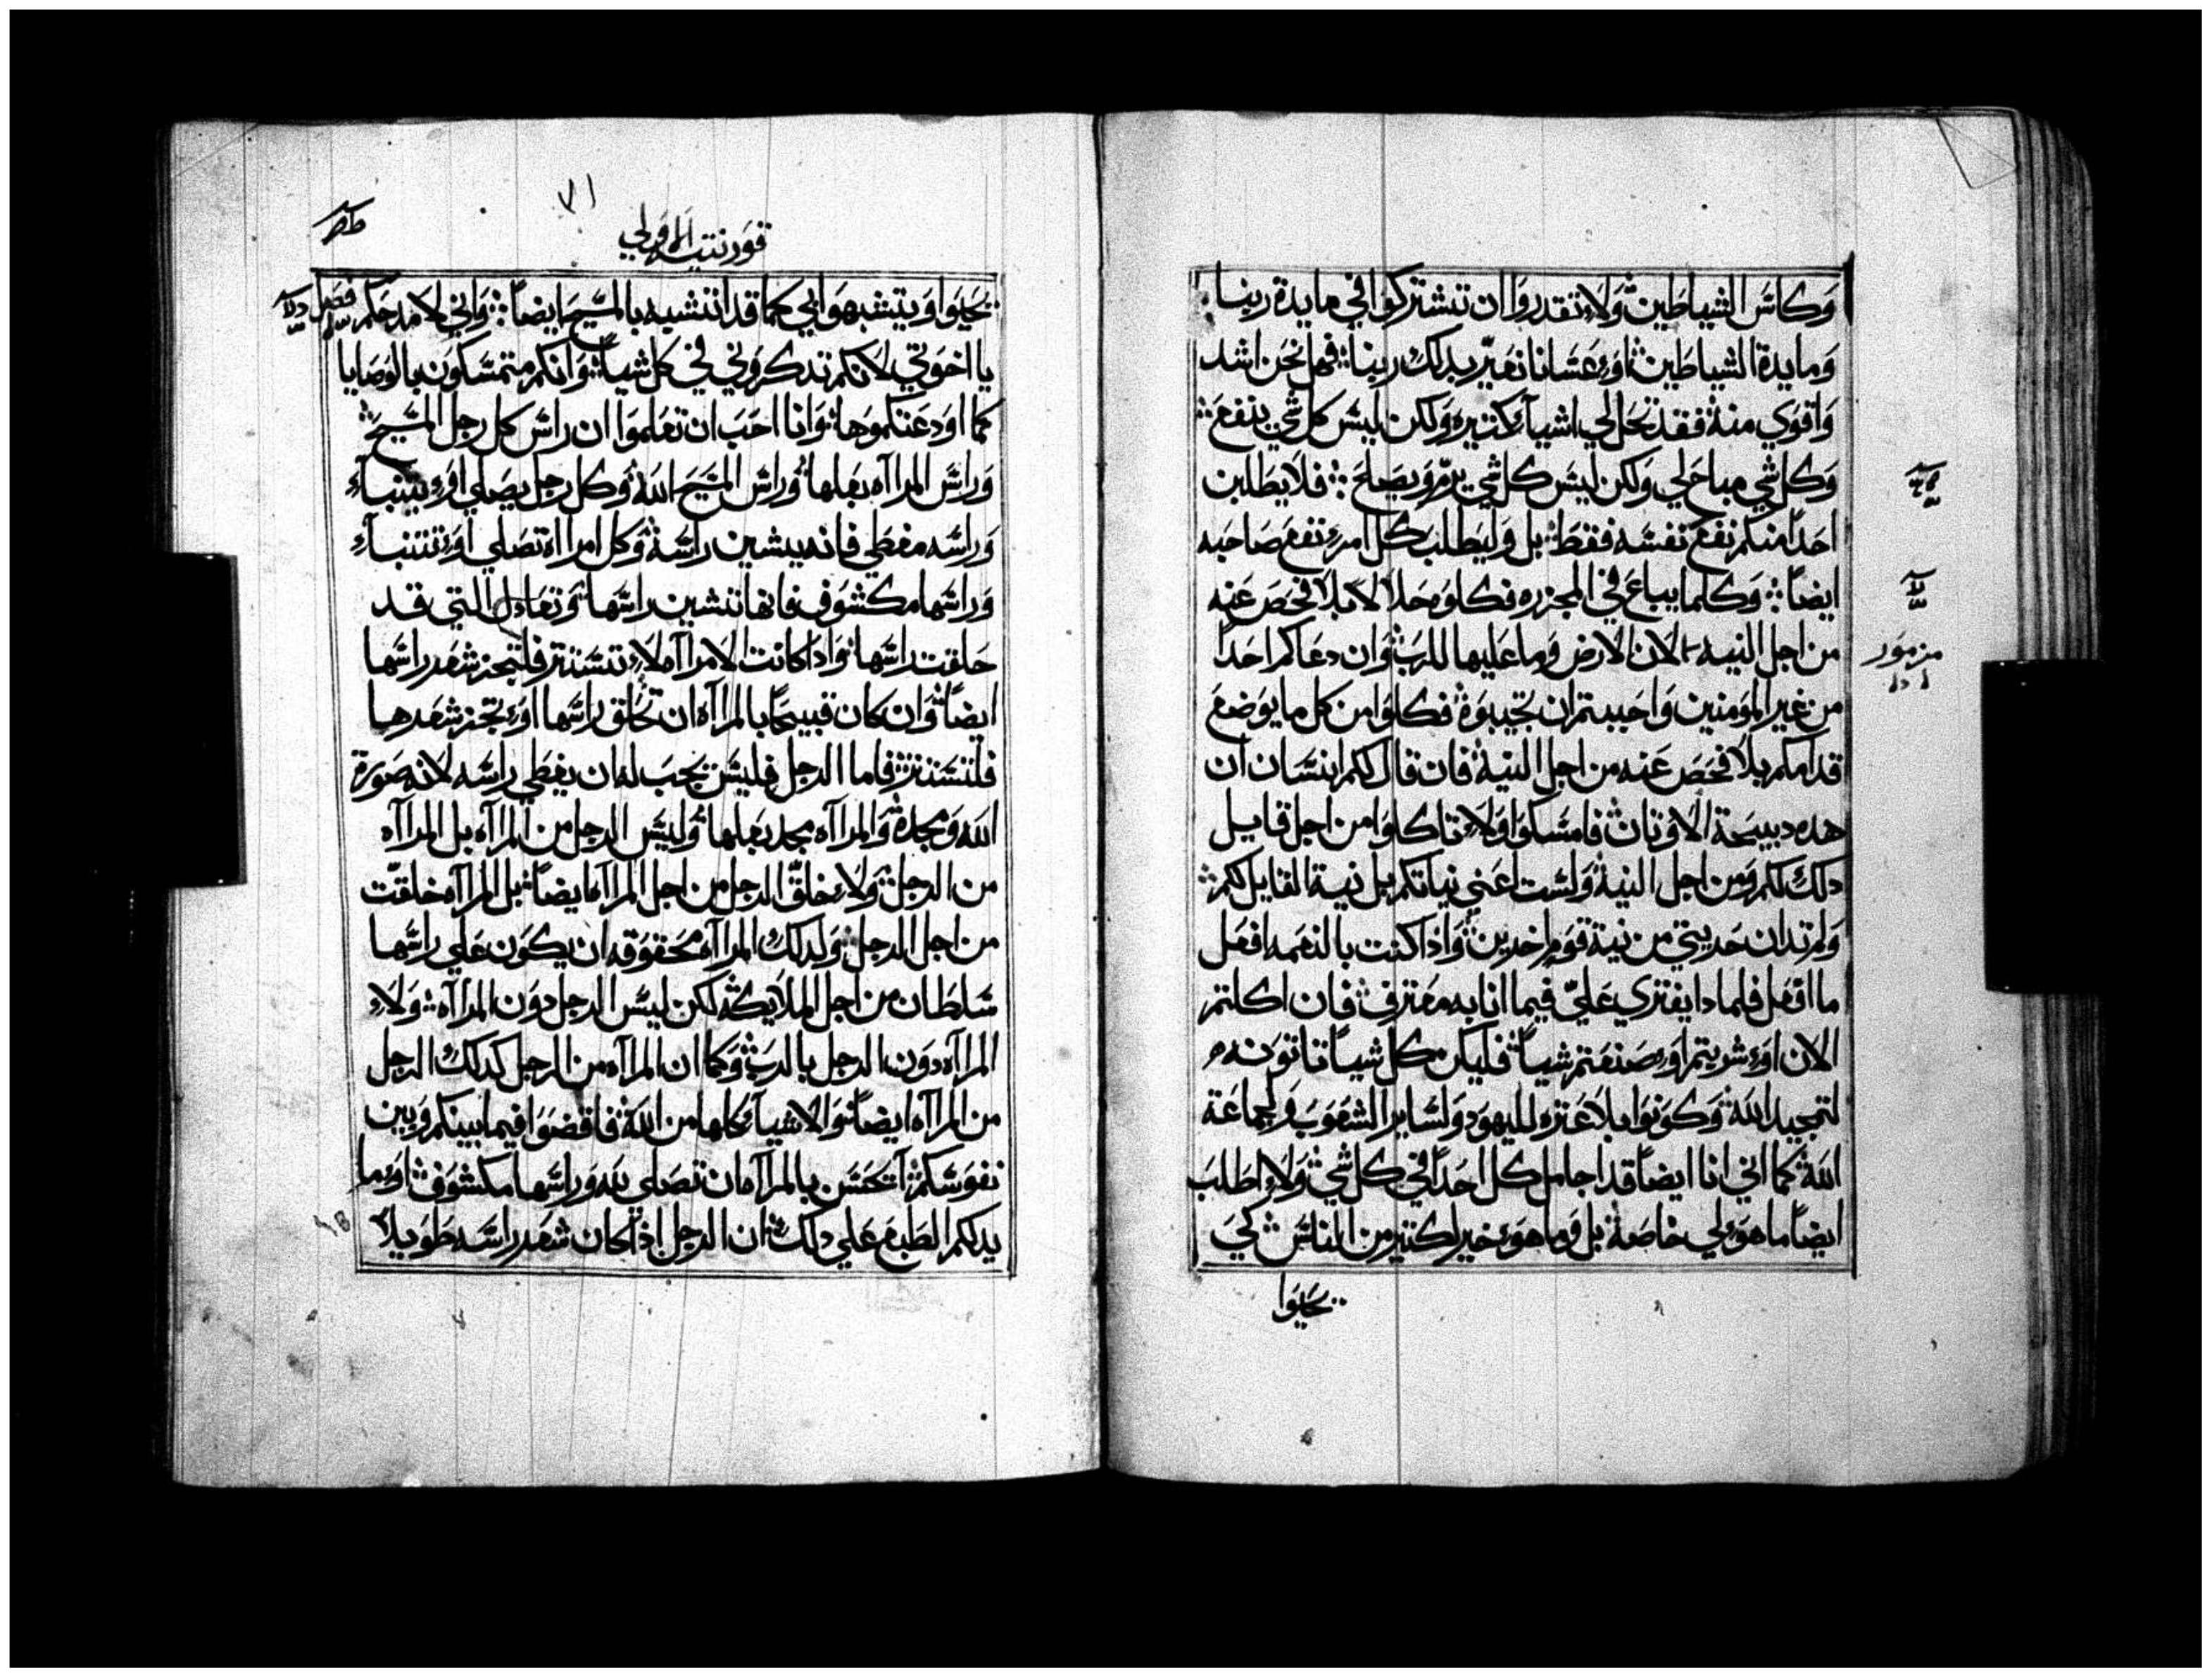 وكاس الشياطين ولا تقدروا ان تشتركوا في مايدة ربنا
ومايدة الشياطين او عسانا نغير بدلك ربنا فهل نحن اشد
واقوي منه فقد تحل لي اشيآء كتيره ولكن ليس كل شي ينفع
وكل شي مباح لي ولكن ليس كل شي يرم ويصلح فلا يطلبن
احدا منكم نفع نفسه فقط بل وليطلب كل امرء نفع صاحبه
ايضاً وكلما يباع في المجزره فكلوه حلالا بلا فحص عنه
من اجل النيه لان الارض وما عليها للرب وان دعاكم احدا
من غير المومنين واحببتم ان تجيبوه فكلوا من كل ما يوضع
قدامكم بلا فحص عنه من اجل النيه فان قال لكم انسان ان
هده دبيحة الاوتان فامسكوا ولا تاكلوا من اجل قايل
دلك لكم ومن اجل النيه ولست اعني نياتكم بل نية القايل لكم
ولم تدان حريتي من نية قوم اخرين واذا كنت بالنعمه افعل
ما افعل فلمادا يفتري عليّ فيما انا به معترف فان اكلتم
الان او شربتم او صنعتم شياً فليكن كل شيا تاتونه
لتمجيد الله وكونوا بلا عتره لليهود ولساير الشعوب ولجماعة
الله كما اني انا ايضاً قد اجامل كل احداً في كل شي ولا اطلب
ايضاً ما هو لي خاصة بل وما هو خير لكتير من الناس كي
يحيوا
مزمور
قورنتيه الاولي
٧١
يحيوا ويتشبهوا بي كما قد اتشبه بالمسيح ايضاً واني لامدحكم
فصل
يا اخوتي لانكم تدكروني في كل شياً وانكم متمسكون بالوصايا
كما اودعتكموها وانا احب ان تعلموا ان راس كل رجل المسيح
وراس المرااه بعلها وراس المسيح الله وكل رجل يصلي او يتنبآء
وراسه مغطي فانه يشين راسه وكل امرااه تصلي او تتنبآء
وراسها مكشوف فانها تشين راسها وتعادل التي قد
حلقت راسها واذا كانت الامرااه لا تستتر فلتجز شعر راسها
ايضاً وان كان قبيحاً بالمرااه ان تحلق راسها او تجز شعرها
فلتستتر فاما الرجل فليس يجب له ان يغطي راسه لانه صورة
الله ومجده والمرااه مجد بعلها وليس الرجل من المرااه بل المرااه
من الرجل ولا خلق الرجل من اجل المرااه ايضاً بل المرااه خلقت
من اجل الرجل ولدلك المرااه محقوقه ان يكون علي راسها
سلطان من اجل الملايكه لكن ليس الرجل دون المرااه ولا
المرااه دون الرجل بالرب وكما ان المرااه من الرجل كدلك الرجل
من المرااه ايضاً والاشيآء كلها من الله فاقضوا فيما بينكم وبين
نفوسكم اتحسن بالمرااه ان تصلي لله وراسها مكشوف او ما
يدلكم الطبع علي دلك ان الرجل اذا كان شعر راسه طويلاً